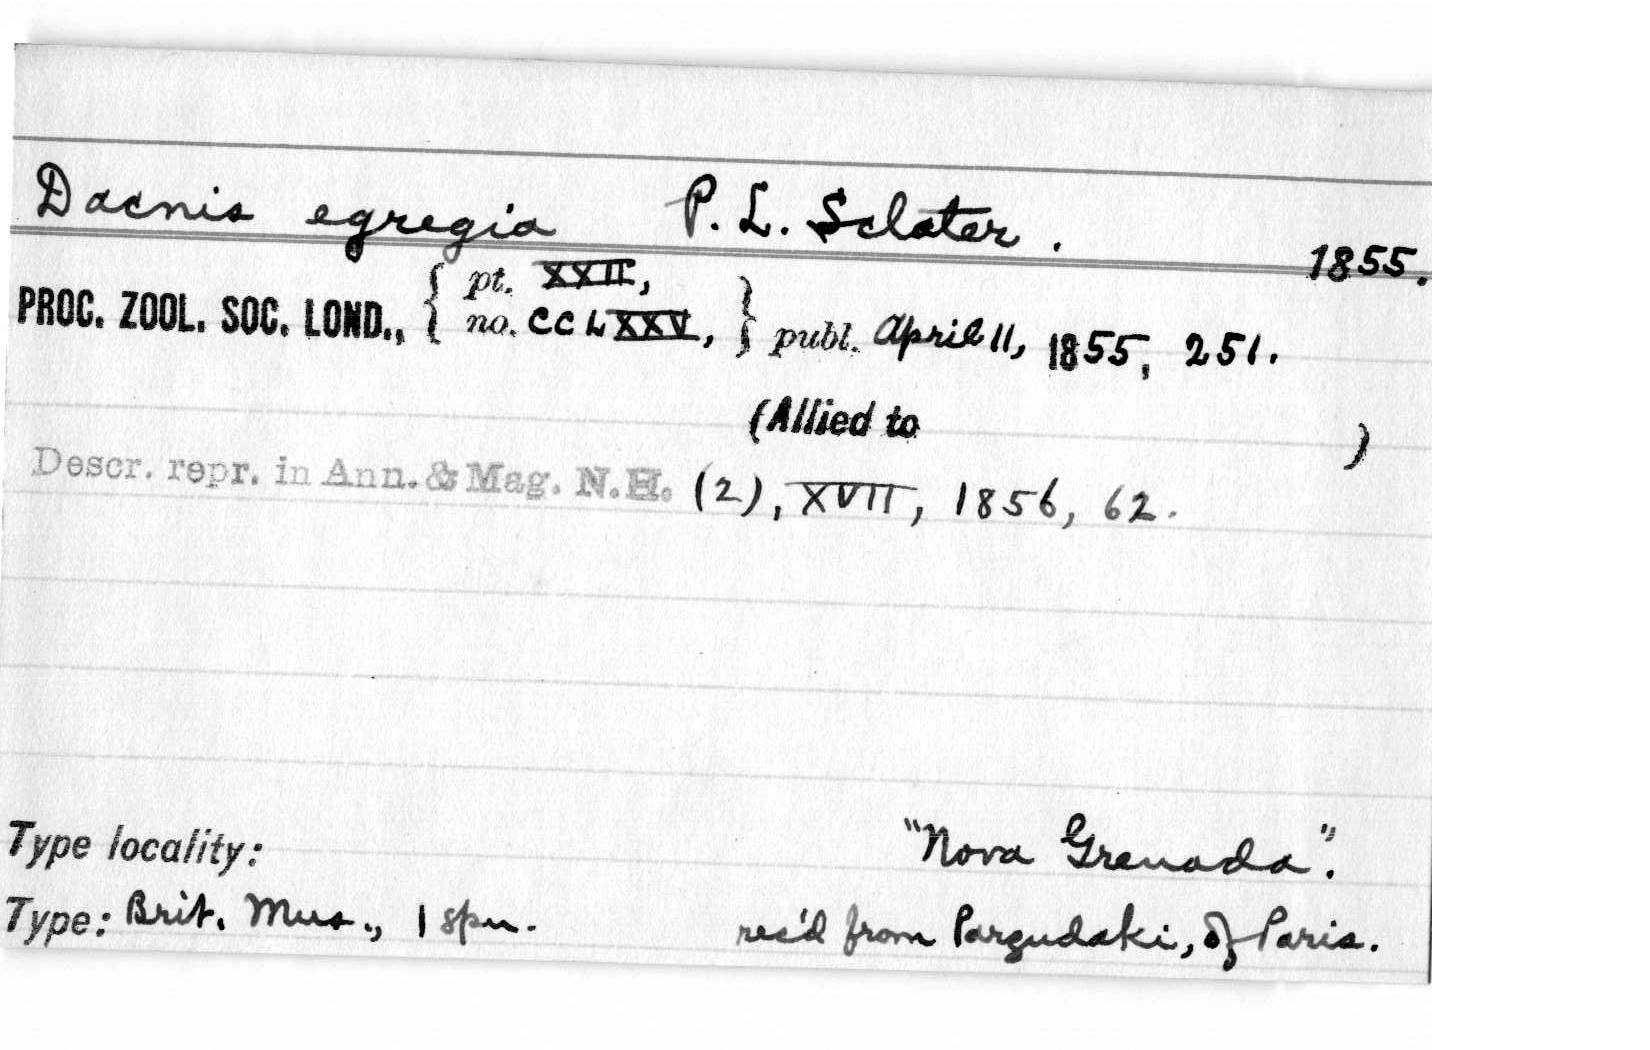 Dacnis egregia P. L. Sclater.
1855.
PROC. ZOOL. SOC. LOND., { pt. XXII, no. CCLXXV, } publ. April 11, 1855, 251.
(Allied to )
Descr. repr. in Ann. & Mag. N.H. (2), XVII, 1856, 62.
Type locality: "Nova Grenada".
Type: Brit. Mus., 1 spn. rec'd from Pargudaki, of Paris.